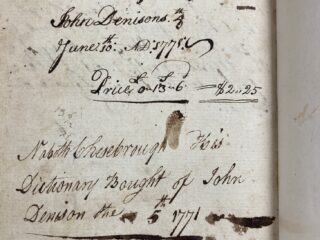 John Denisons
June 10th AD. 1771
Price £0-13-6 = $2..25
Nabth Chesebrough His
Dictionary Bought of John
Denison the 5th 1771